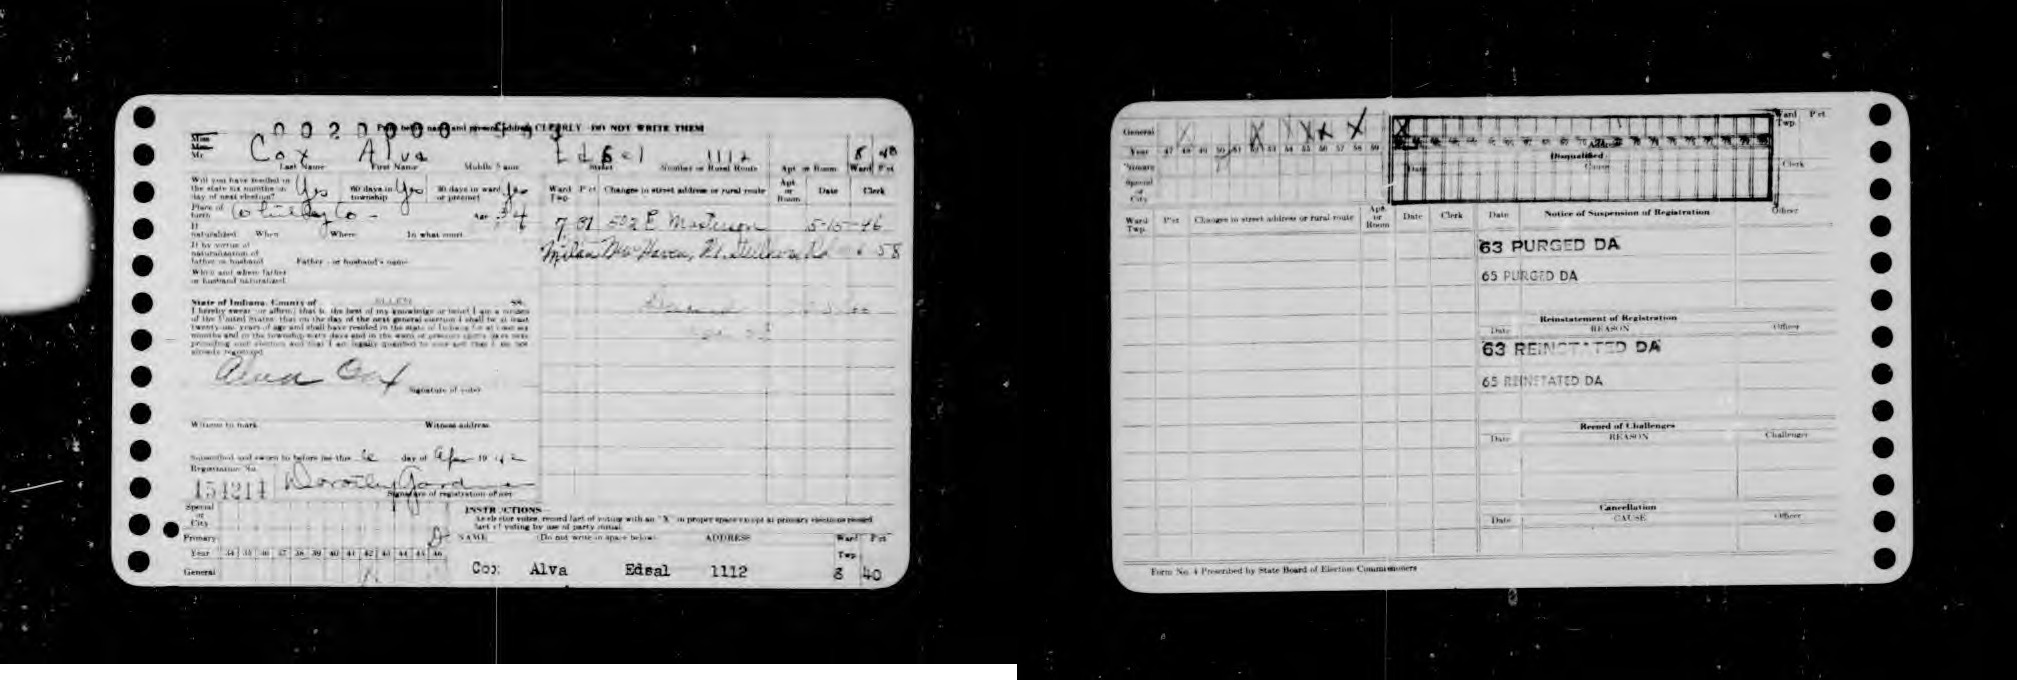 0020000
Print below name and present address CLEARLY - DO NOT WRITE THEM
Miss
Mrs.
Mr.
Cox Alva Edsel 1112 8 40
Last Name First Name Middle Name Street Number or Rural Route Apt or Room Ward Pct
Will you have resided in
the state six months on
day of next election? Yes 60 days in township Yes 30 days in ward or precinct Yes
Ward Twp. Pct Changes in street address or rural route Apt. or Room Date Clerk
Place of birth Whitley Co - Age
7 31 502 E Masterson 5-15-46
If naturalized When Where In what court
Milan New Haven, Rd 58
If by virtue of
naturalization of
father or husband Father's or husband's name
When and where father
or husband naturalized
State of Indiana, County of ALLEN ss.
I hereby swear (or affirm) that to the best of my knowledge or belief I am a citizen
of the United States; that on the day of the next general election I shall be at least
twenty-one years of age and shall have resided in the state of Indiana for at least six
months and in the township sixty days and in the ward or precinct thirty days next
preceding such election and that I am legally qualified to vote and that I am not
already registered.
Alva Cox
Signature of voter
Witness to mark Witness address
Subscribed and sworn to before me this day of Apr 19 42
Registration No.
154214 Dorothy Gardner
Signature of registration officer
Special
or
City
INSTRUCTIONS
As elector votes, record fact of voting with an "X" in proper space except at primary elections record
fact of voting by use of party initial.
Primary D
NAME (Do not write in space below) ADDRESS Ward Twp. Pct
Year 34 35 36 37 38 39 40 41 42 43 44 45 46
General X
Cox Alva Edsal 1112 8 40
General X X X X X X X
Year 47 48 49 50 51 52 53 54 55 56 57 58 59
Primary
Special
or
City
Disqualified
Date Cause Clerk
Ward Twp. Pct
Ward Twp. Pct Changes in street address or rural route Apt. or Room Date Clerk
Date Notice of Suspension of Registration Officer
63 PURGED DA
65 PURGED DA
Reinstatement of Registration
Date REASON Officer
63 REINSTATED DA
65 REINSTATED DA
Record of Challenges
Date REASON Challenger
Cancellation
Date CAUSE Officer
Form No. 4 Prescribed by State Board of Election Commissioners